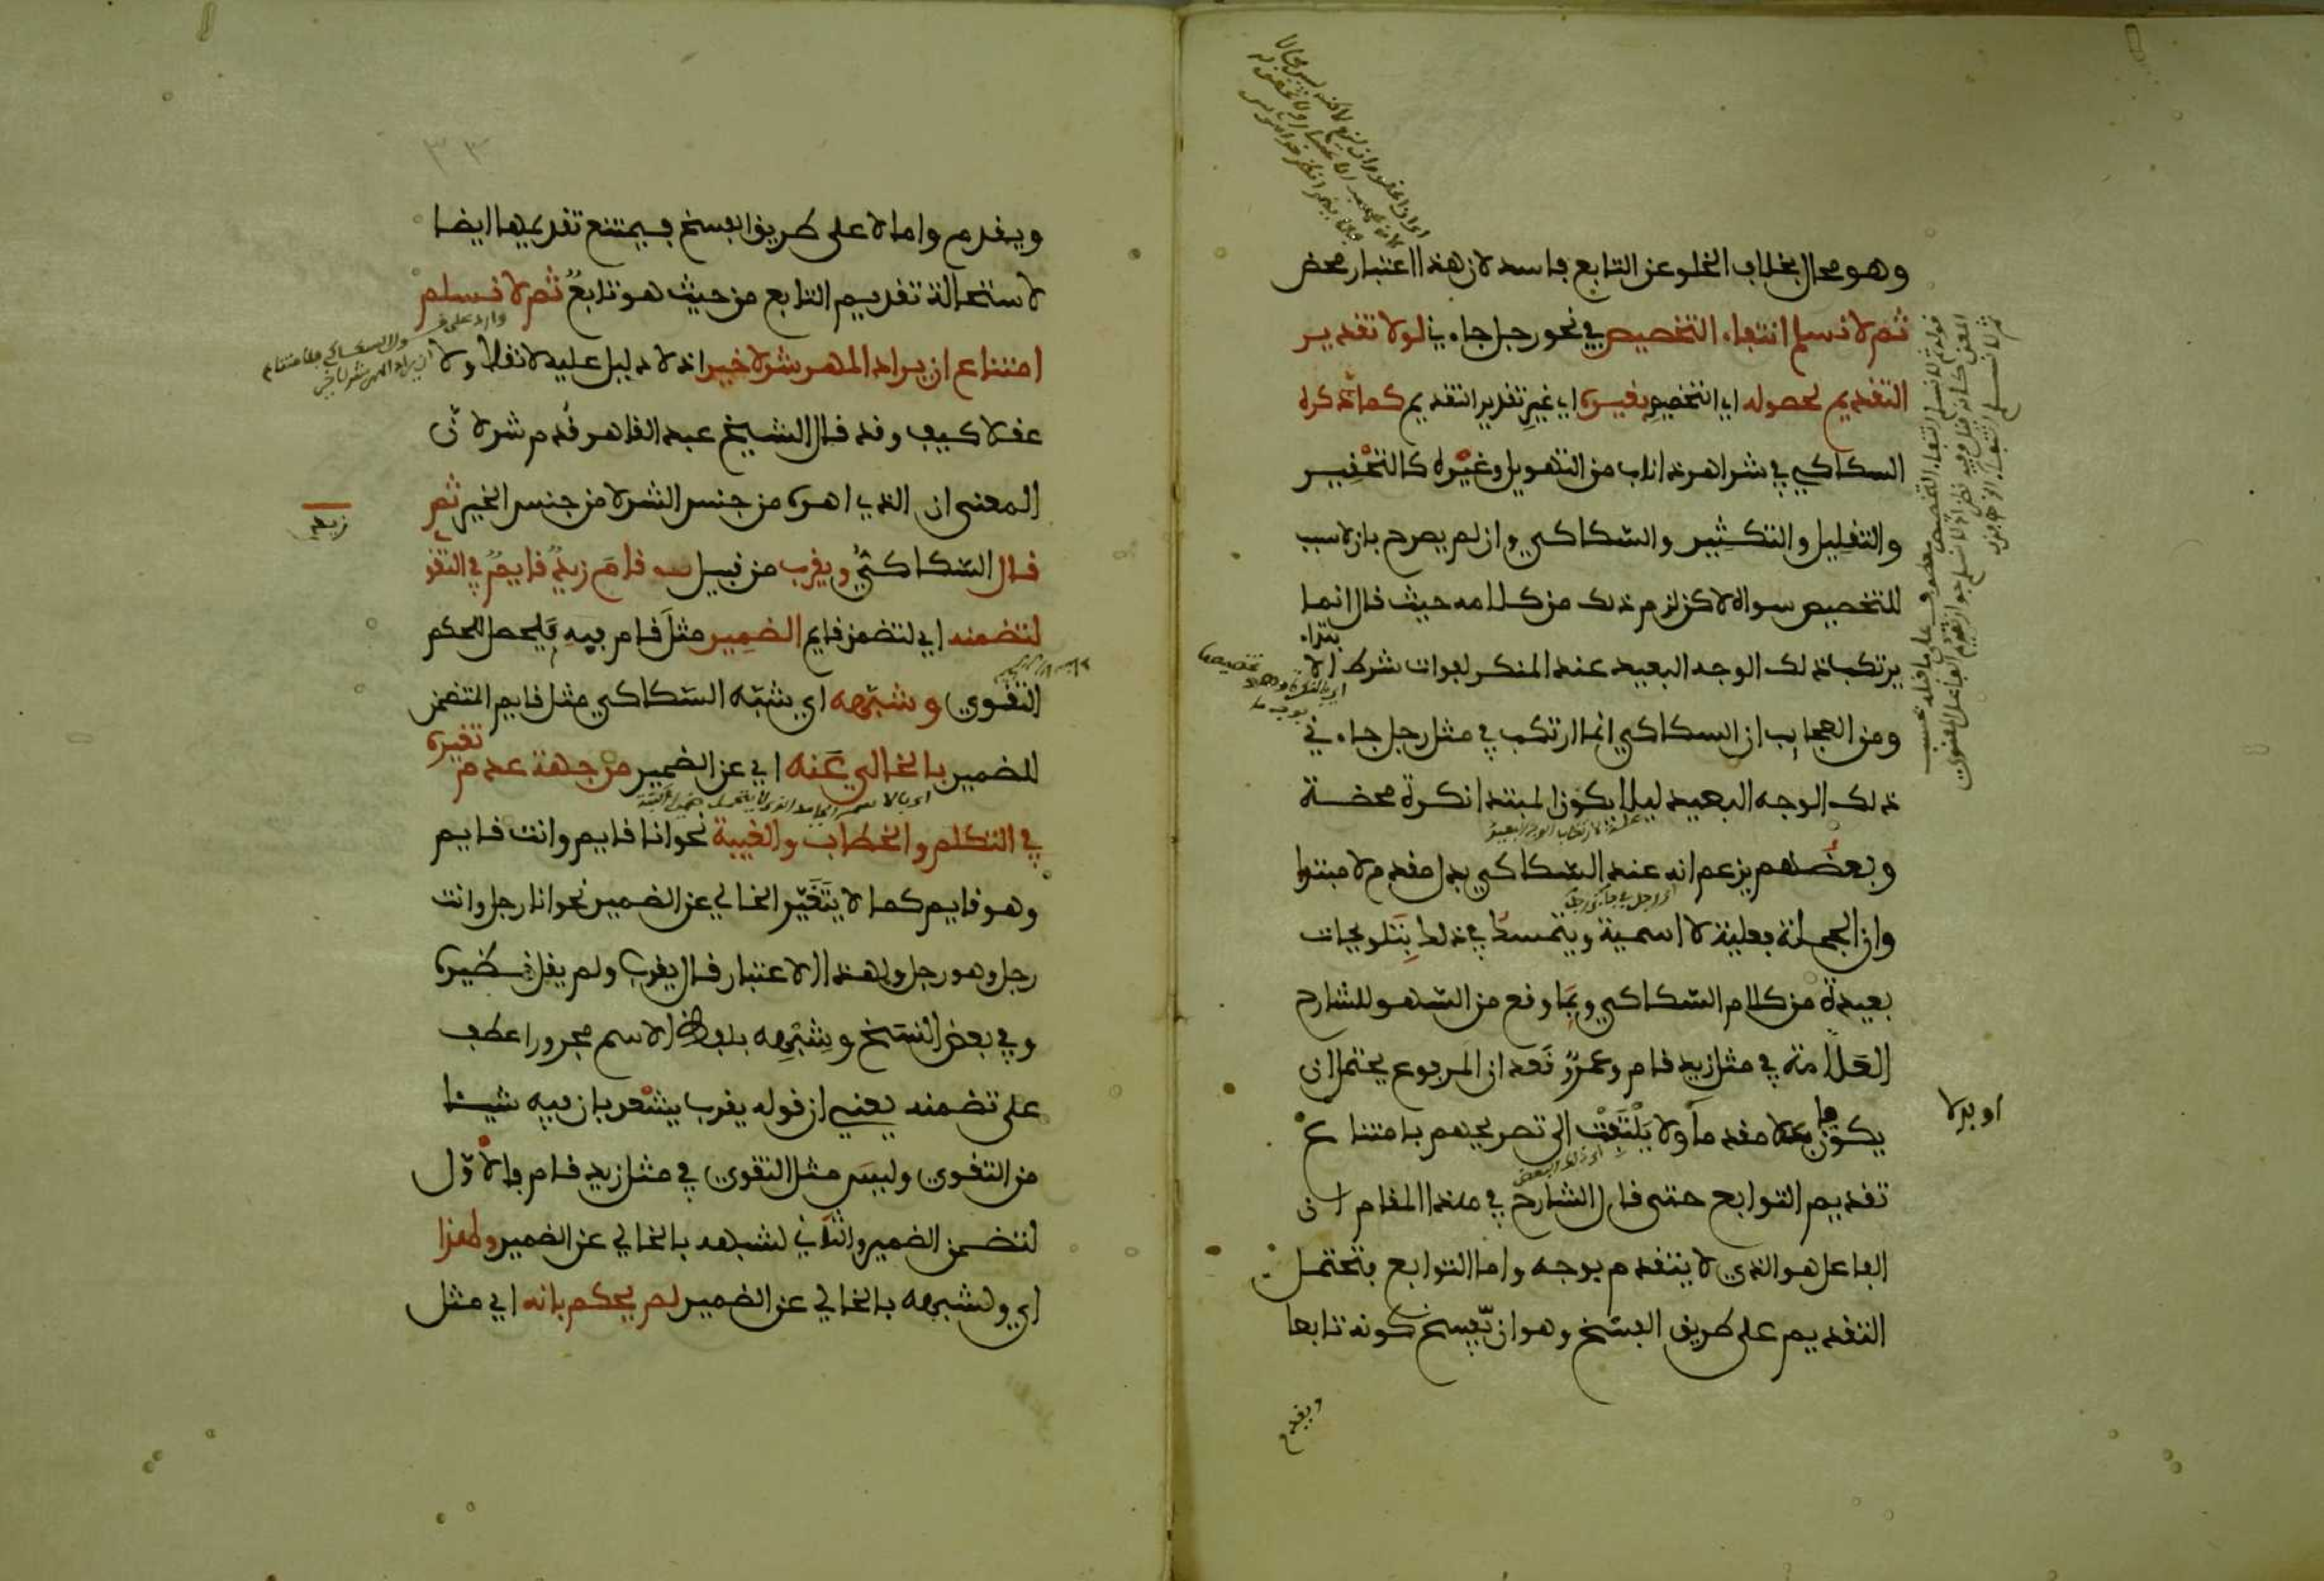 وهو محال بخلاف الخلو عن التابع فاسد لان هذا اعتبار محض
ثم لا نسلم انتفاء التخصيص في نحو رجل جاءني لولا تقدير
التقديم لحصوله اي التخصيص بغيره اي غير تقدير التقديم كما ذكره
السكاكي في شر اهر ذا ناب من التهويل وغيره كالتحقير
والتقليل والتكثير والسكاكي وان لم يصرح بان لا سبب
للتخصيص سواه لاكن لزم ذلك من كلامه حيث قال انما
يرتكب ذلك الوجه البعيد عند المنكر لفوات شرط الابتداء
ومن العجايب ان السكاكي انما ارتكب في مثل رجل جاءني
ذلك الوجه البعيد ليلا يكون المبتدا نكرة محضة
علة لارتكاب الوجه البعيد
وبعضهم يزعم انه عند السكاكي بدل مقدم لا مبتدا
وان الجملة فعلية لا اسمية ويتمسك في ذلك بتلويحات
بعيدة من كلام السكاكي وبما وقع من السهو للشارح
العلامة في مثل زيد قام وعمرو قعد ان المرفوع يحتمل ان
يكون فاعلا مقدما ولا يلتفت الى تصريحهم بامتناع
او بدلا
اي ذلك البعض
تقديم التوابع حتى قال الشارح في هذا المقام ان
الفاعل هو الذي لا يتقدم بوجه واما التوابع فتحتمل
التقديم على طريق الفسخ وهو ان يفسخ كونه تابعا
ويقدم
ويقدم واما لا على طريق الفسخ فيمتنع تقديمها ايضا
لاستحالة تقديم التابع من حيث هو تابع ثم لا نسلم
امتناع ان يراد المهر شر لا خير اذ لا دليل عليه لا نقلا ولا
عقلا كيف وقد قال الشيخ عبد القاهر قدم شر لان
المعنى ان الذي اهره من جنس الشر لا من جنس الخير ثم
قال السكاكي ويقرب من قبيل هو قام زيد قايم في التقو
زيد
لتضمنه اي لتضمن قايم الضمير مثل قام فيه يحصل للحكم
التقوي وشبهه اي شبه السكاكي مثل قايم المتضمن
للضمير بالخالي عنه اي عن الضمير من جهة عدم تغيره
في التكلم والخطاب والغيبة نحو انا قايم وانت قايم
وهو قايم كما لا يتغير الخالي عن الضمير نحو انا رجل وانت
رجل وهو رجل وبهذا الاعتبار قال يقرب ولم يقل نظيره
وفي بعض النسخ وشبهه بلفظ الاسم مجرورا عطف
على تضمنه يعني ان قوله يقرب يشعر بان فيه شيئا
من التقوي وليس مثل التقوي في مثل زيد قام فالاول
لتضمن الضمير والثاني لشبهه بالخالي عن الضمير ولهذا
اي ولشبهه بالخالي عن الضمير لم يحكم بانه اي مثل